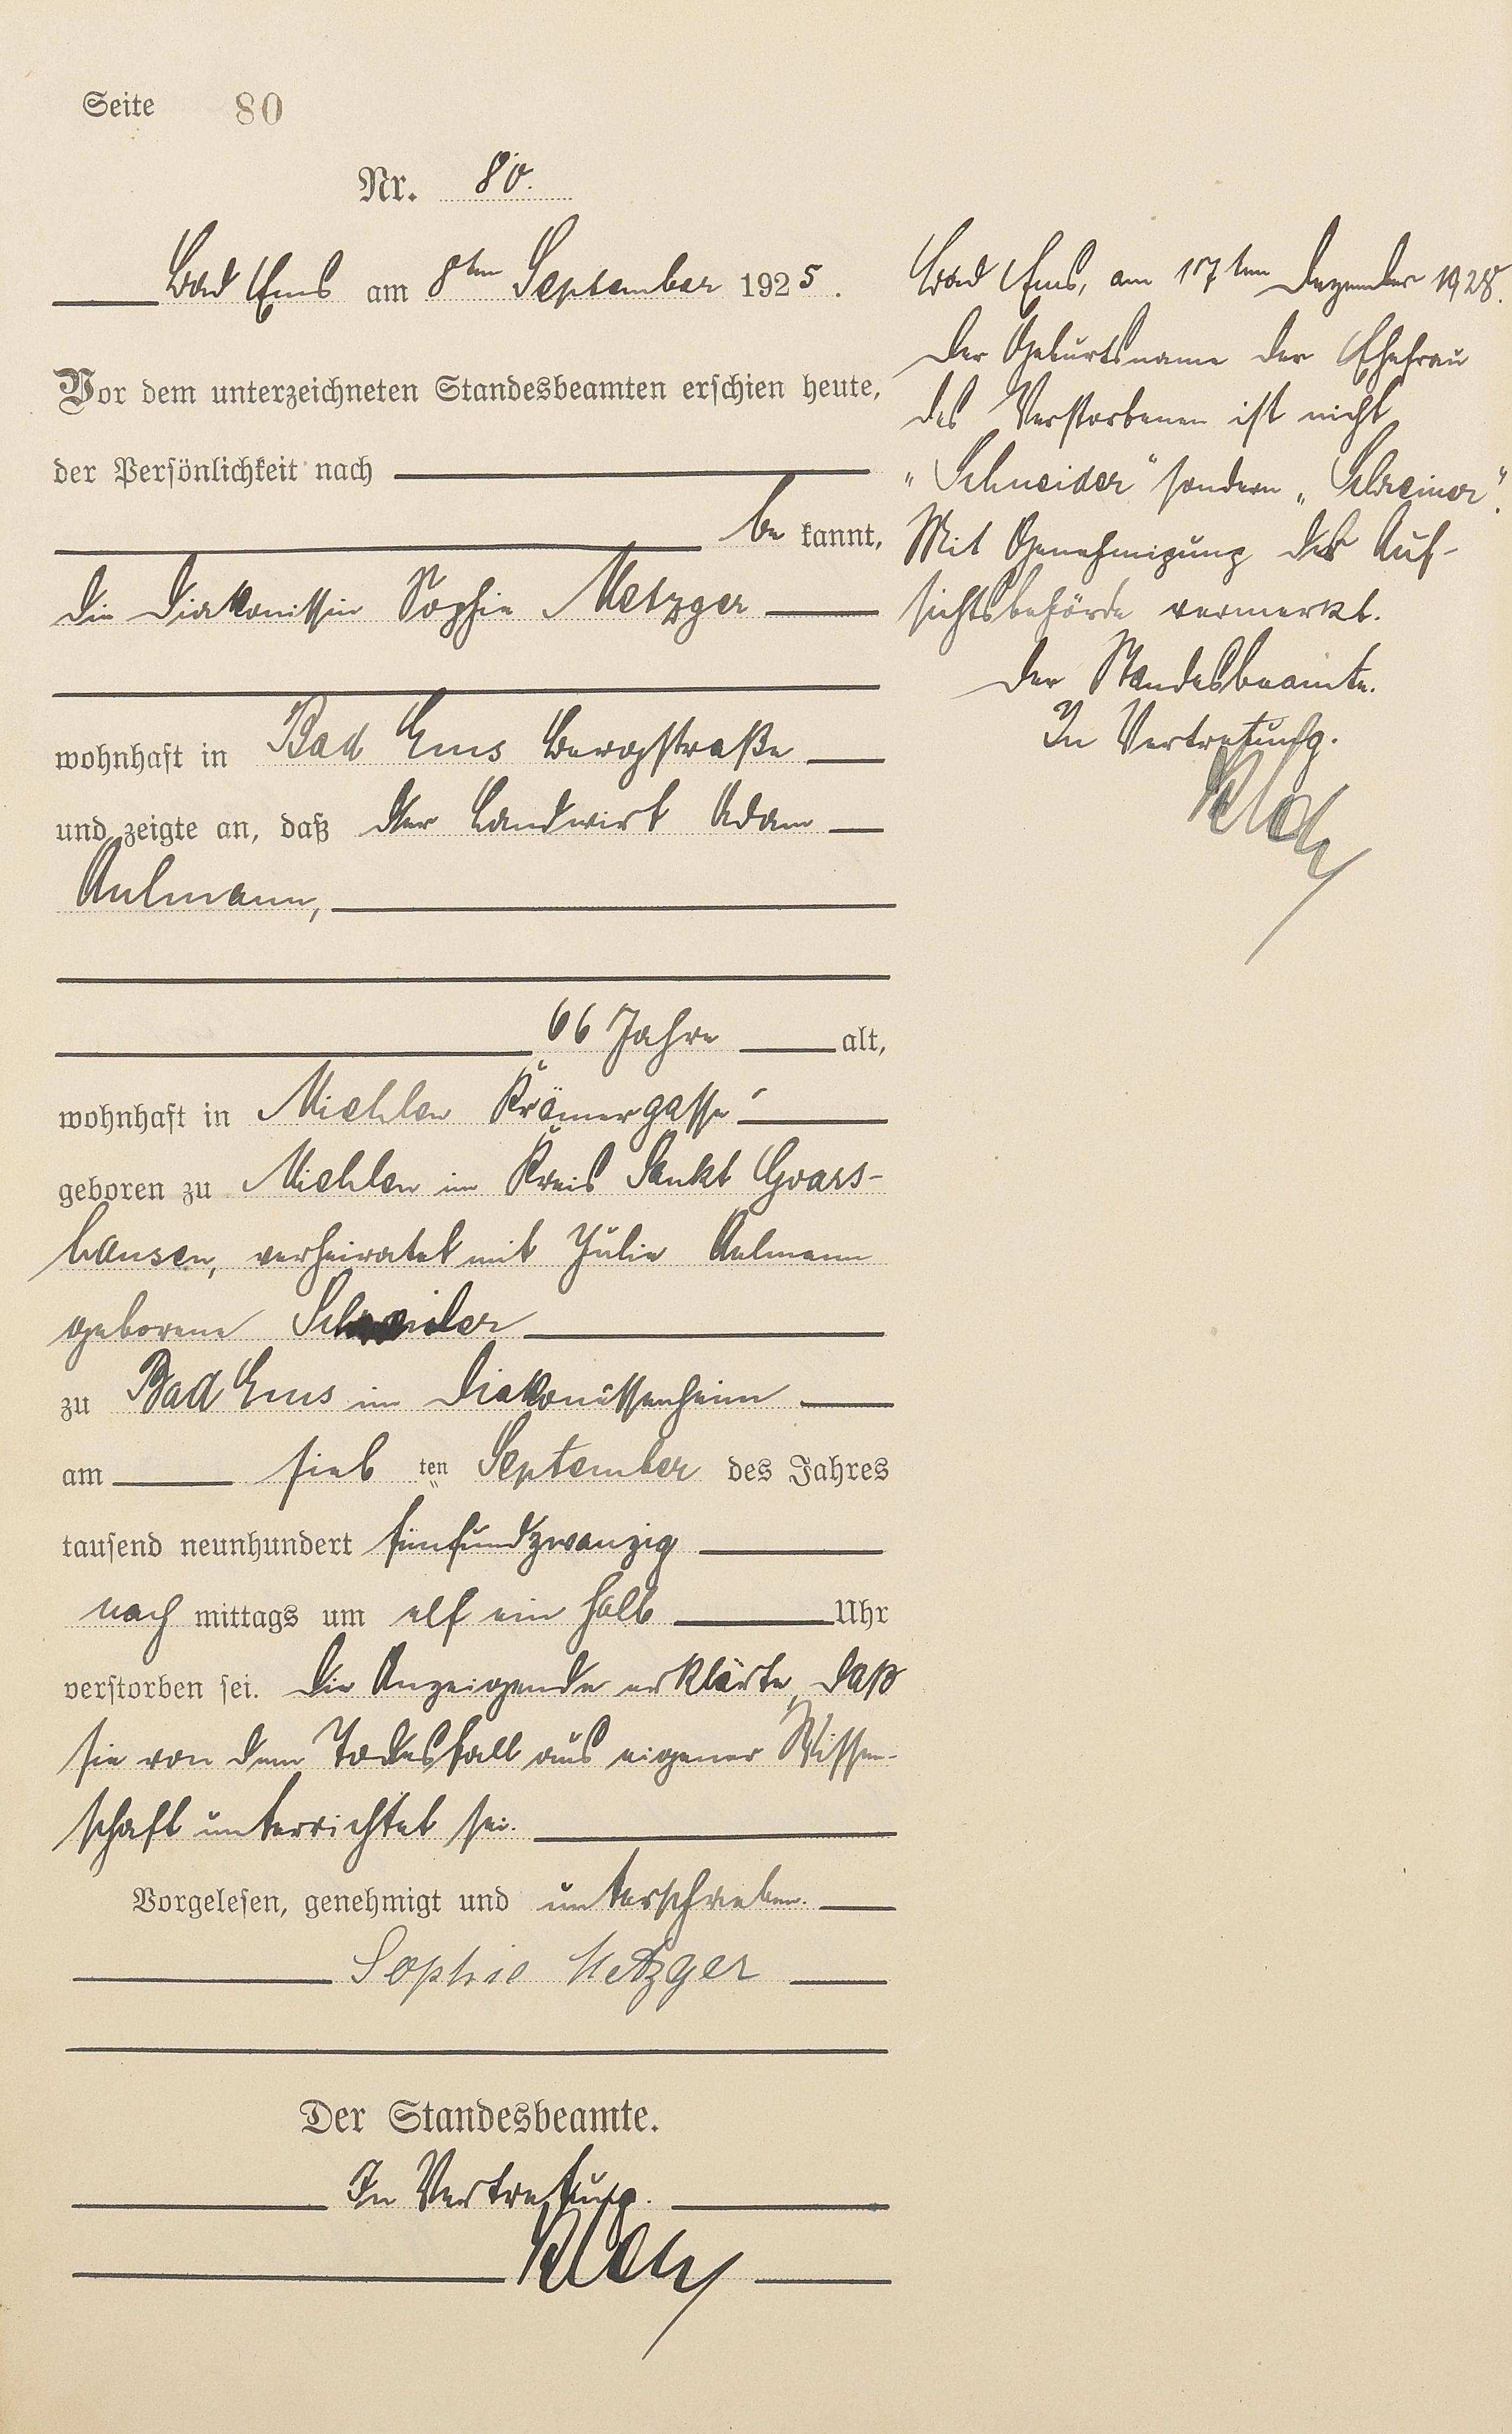 Seite 80
Nr. 80.
Bad Ems am 8ten September 1925.
Vor dem unterzeichneten Standesbeamten erschien heute,
der Persönlichkeit nach
be kannt,
die Diakonissin Sophie Metzger
wohnhaft in Bad Ems Bergstraße
und zeigte an, daß der Landwirt Adam
Aulmann,
66 Jahre alt,
wohnhaft in Miehlen Krämergasse
geboren zu Miehlen im Kreis Sankt Goars-
hausen, verheiratet mit Julie Aulmann
geborene Schneider
zu Bad Ems im Diakonissenheim
am sieb ten September des Jahres
tausend neunhundert fünfundzwanzig
nach mittags um elf ein halb Uhr
verstorben sei. Die Anzeigende erklärte, daß
sie von dem Todesfall aus eigener Wissen-
schaft unterrichtet sei.
Vorgelesen, genehmigt und unterschrieben.
Sophie Metzger
Der Standesbeamte.
In Vertretung.
Bad Ems, am 17ten Dezember 1928.
Der Geburtsname der Ehefrau
des Verstorbenen ist nicht
"Schneider" sondern "Schreiner".
Mit Genehmigung der Auf-
sichtsbehörde vermerkt.
Der Standesbeamte.
In Vertretung.